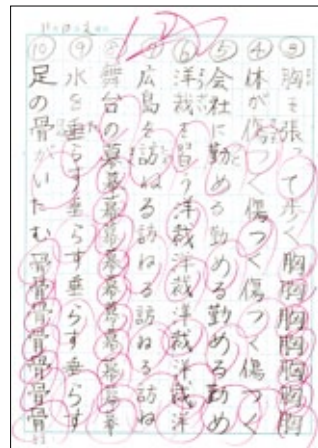 ③胸を張って歩く胸胸胸胸胸胸
④体が傷つく傷つく傷つく傷つく
⑤会社に勤める勤める勤める勤め
⑥洋裁を習う洋裁洋裁洋裁洋裁洋
⑦広島を訪ねる訪ねる訪ねる訪ね
⑧舞台の幕幕幕幕幕幕幕幕幕
⑨水を垂らす垂らす垂らす垂らす
⑩足の骨がいたむ骨骨骨骨骨骨骨